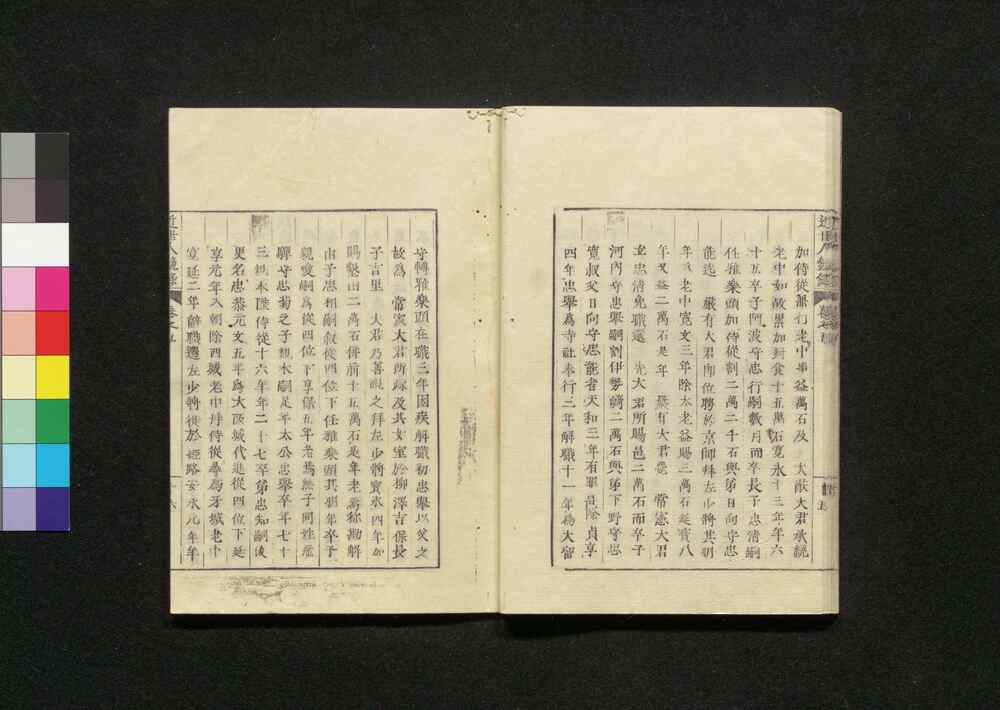 加侍從蕭行老中事益萬石及　大猷大君承統
老中如故累加封食十五萬石寬永十三年年六
十五卒子阿波守忠行嗣數月而卒長子忠清嗣
任雅樂頭加侍從割二萬二千石與弟日向守忠
能迄　嚴有大君即位聘於京師拜左少將其明
年為老中寬文三年除大老益賜三萬石延寶八
年又益二萬石是年　嚴有大君薨　常憲大君
立忠清免職還　先大君所賜邑二萬石而卒子
河內守忠舉嗣割伊勢崎二萬石與弟下野守忠
寬叔父日向守忠能者天和三年有罪邑除貞享
四年忠舉為寺社奉行三年解職十一年為大留
守轉雅樂頭在職三年因疾解職初忠舉以父之
故為　常憲大君所疎及其女室於柳澤吉保長
子吉里　大君乃善視之拜左少將寶永四年加
賜墾田二萬石併前十五萬石是年老焉稱勘解
由子忠相嗣敍從四位下任雅樂頭其明年卒子
親愛嗣為從四位下享保五年老焉無子同姓產
驒守忠菊之子親本嗣是年太公忠舉卒年七十
三親本陞侍從十六年年二十七卒弟忠知嗣後
更名忠恭元文五年為大阪城代進從四位下延
享元年入朝除西城老中拜侍從尋為牙城老中
寬延二年辭職遷左少將徙於姬路安永元年年
近世人鏡錄